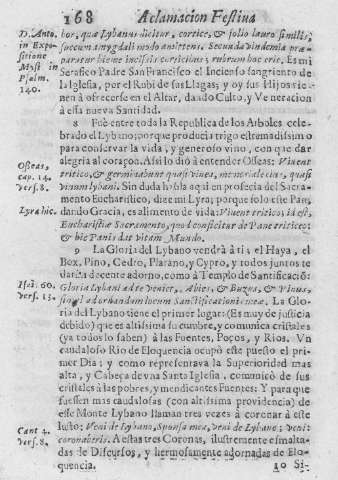 168 Aclamacion Festiva
D. Anto. in Expositione Myst in Psalm. 140.
bor, quæ Lybanus dicitur, cortice, & folio lauro similis,
succum amygdali modo mittens. Secunda vindemia præ-
paratur hieme incisis corticibus; rubrum hoc erit. Es mi
Serafico Padre San Francisco el Incienso sangriento de
la Iglesia, por el Rubi de sus Llagas; y oy sus Hijos vie-
nen à ofrecerse en el Altar, dando Culto, y Veneracion
à esta nueva Santidad.
8 Fuè entre toda la Republica de los Arboles cele-
brado el Lybano; porque producia trigo estremadissimo
para conservar la vida, y generoso vino, con que dar
alegria al coraçon. Assi lo diò à entender Osseas: Vivent
Osseas, cap. 14. vers. 8.
tritico, & germinabunt quasi vinea, memoriale eius, quasi
vinum lybani. Sin duda habla aqui en profecia del Sacra-
mento Eucharistico, dize mi Lyra; porque solo este Pan,
Lyra hic.
dando Gracia, es alimento de vida: Vivent tritico; id est,
Eucharistiæ Sacramento, quod conficitur de Pane triticeo;
& hic Panis dat vitam Mundo.
9 La Gloria del Lybano vendrà à ti, el Haya, el
Box, Pino, Cedro, Platano, y Cypro, y todos juntos te
daràn decente adorno, como à Templo de Santificaciò:
Isai. 60. vers. 13.
Gloria Lybani ad te veniet, Abies, & Buxus, & Pinus,
simul ad ornandum locum Sanctificationis meæ. La Glo-
ria del Lybano tiene el primer lugar: (Es muy de justicia
debido) que es altissima su cumbre, y comunica cristales
(ya todos lo saben) à las Fuentes, Poços, y Rios. Vn
caudaloso Rio de Eloquencia ocupò este puesto el pri-
mer Dia; y como representava la Superioridad mas
alta, y Cabeça de vna Santa Iglesia, comunicò de sus
cristales à las pobres, y mendicantes Fuentes: Y para que
fuessen mas caudalosas (con altissima providencia) de
este Monte Lybano llaman tres vezes à coronar à este
Cant 4. vers. 8.
Iusto: Veni de Lybano, Sponsa mea, veni de Lybano; veni:
coronaberis. A estas tres Coronas, ilustremente esmalta-
das de Discursos, y hermosamente adornadas de Elo-
quencia.
10 Si-